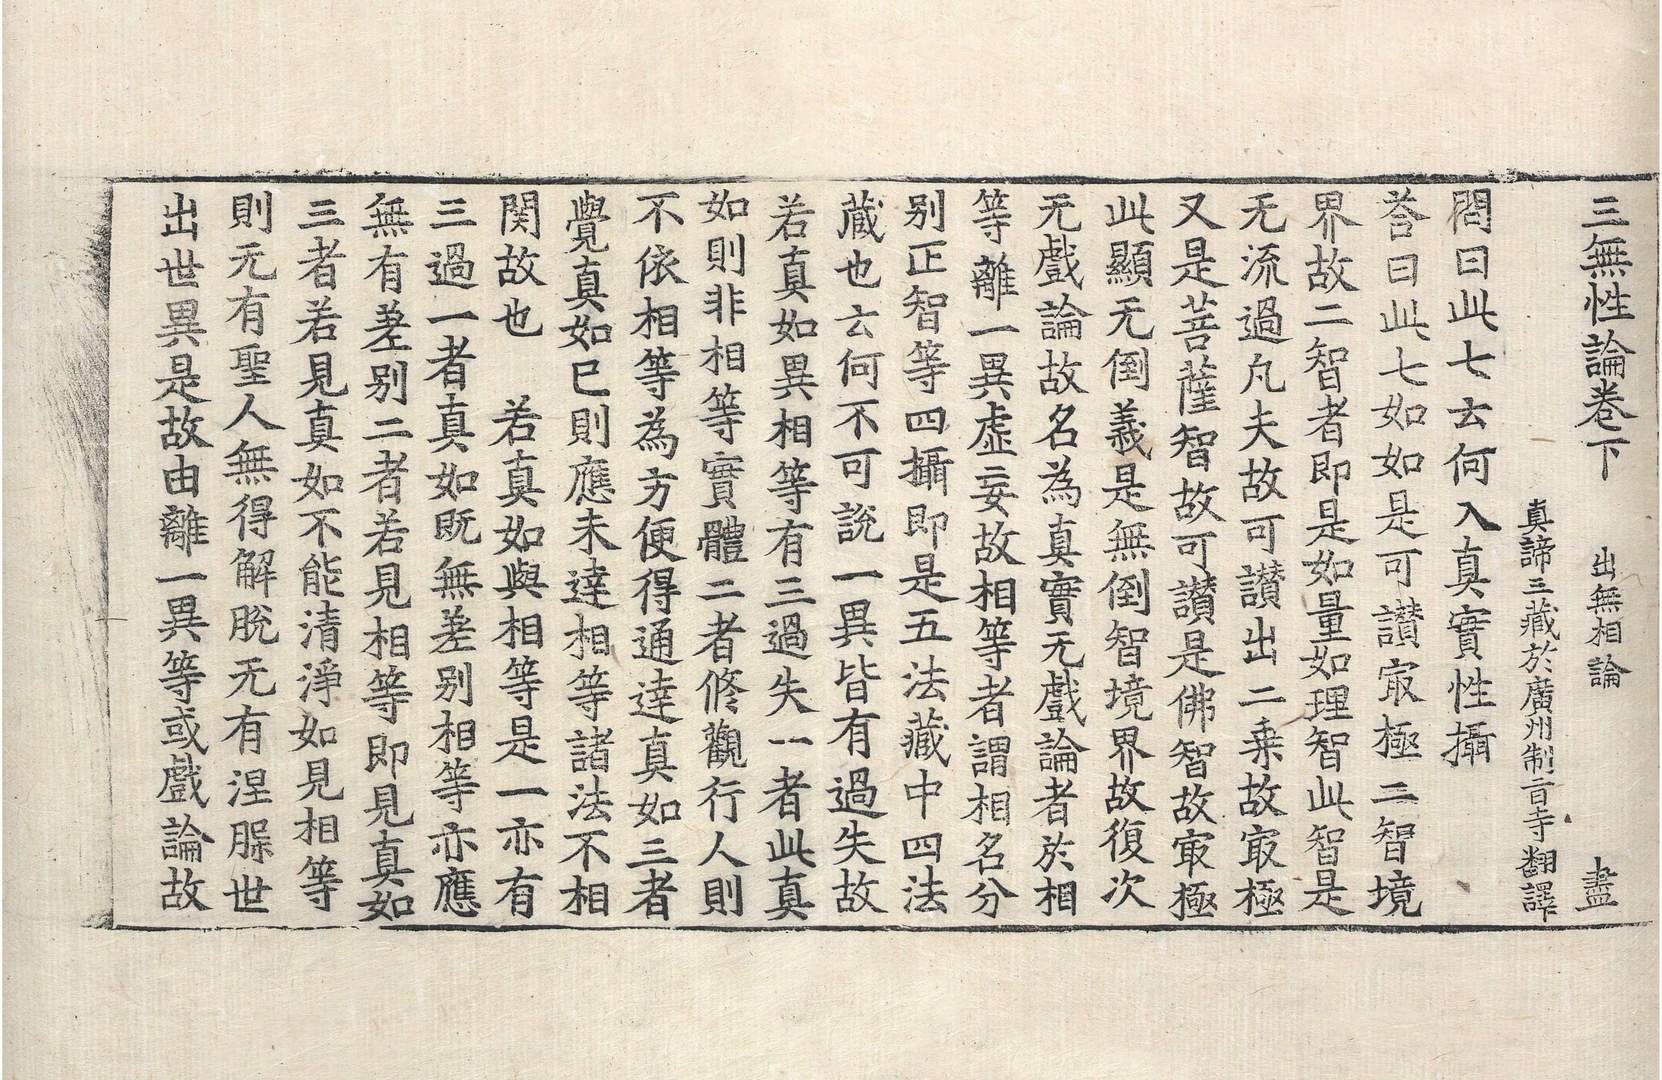 三無性論卷下 出無相論 盡
真諦三藏於廣州制旨寺翻譯
問曰此七云何入真實性攝
荅曰此七如如是可讃㝡極二智境
界故二智者即是如量如理智此智是
无流過凡夫故可讃出二乗故㝡極
又是菩薩智故可讃是佛智故㝡極
此顯无倒義是無倒智境界故復次
无戲論故名為真實无戲論者於相
等離一異虛妄故相等者謂相名分
別正智等四攝即是五法藏中四法
蔵也云何不可說一異皆有過失故
若真如異相等有三過失一者此真
如則非相等實體二者修觀行人則
不依相等為方便得通達真如三者
覺真如已則應未達相等諸法不相
関故也 若真如與相等是一亦有
三過一者真如既無差別相等亦應
無有差別二者若見相等即見真如
三者若見真如不能清淨如見相等
則无有聖人無得解脫无有涅槃世
出世異是故由離一異等或戲論故